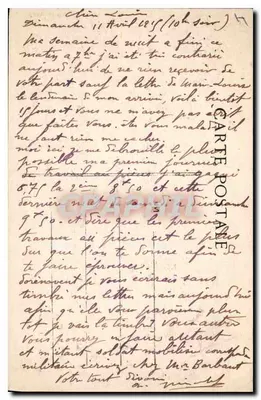 Dimanche 11 Avril 1915 (10h soir)
Ma semaine de nuit a fini ce
matin à 7h j'ai été très contrarié
aujourd'hui de ne rien recevoir de
votre part sauf la lettre de Marie-Louise
le lendemain de mon arrivée, voilà bientôt
15 jours et vous ne m'avez pas écrit
que faites vous. êtes vous malade il
ne faut rien me cacher
moi ici je me débrouille le plus
possible ma première journée
de travail au pièces j'ai gagné
8,75 la 2ème 8,50 et cette
dernière nuit de samedi à dimanche
9,50. et dire que les premiers
travaux au pièces c'est le plus
dur que l'on donne afin de
te faire éprouver.
Dorénavant je vous écrirais sans
timbre mes lettres mais aujourd'hui
afin qu'elle vous parvienne plus
tot je mis le timbre. Vous aussi
vous pouvez en faire autant
et mettant soldat mobilisé
militaire chez Mme Barbaut
Votre tout dévoué
CARTE POSTALE